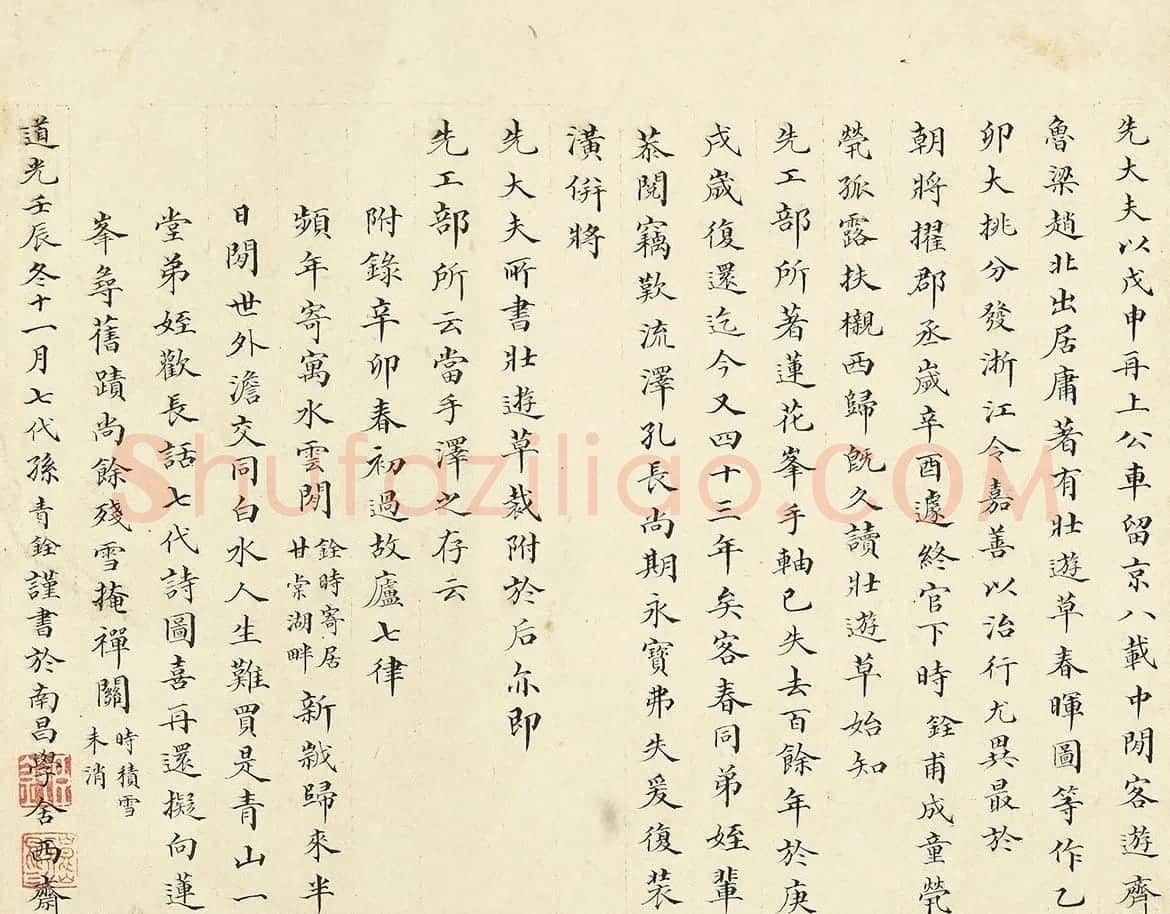 先大夫以戊申再上公車留京八載中閒客遊齊
魯梁趙北出居庸著有壯遊草春暉圖等作乙
卯大挑分發浙江令嘉善以治行尤異最於
朝將擢郡丞歲辛酉遽終官下時銓甫成童煢
煢孤露扶櫬西歸旣久讀壯遊草始知
先工部所著蓮花峯手軸已失去百餘年於庚
戌歲復還迄今又四十三年矣客春同弟姪輩
恭閱竊歎流澤孔長尚期永寶弗失爰復裝
潢併將
先大夫所書壯遊草裁附於后亦即
先工部所云當手澤之存云
附錄辛卯春初過故廬七律
頻年寄寓水雲閒銓時寄居甘棠湖畔新歲歸來半
日閒世外澹交同白水人生難買是青山一
堂弟姪歡長話七代詩圖喜再還擬向蓮
峯尋舊蹟尚餘殘雪掩禪關時積雪未消
道光壬辰冬十一月七代孫青銓謹書於南昌學舍西齋
Shufaziliao.COM